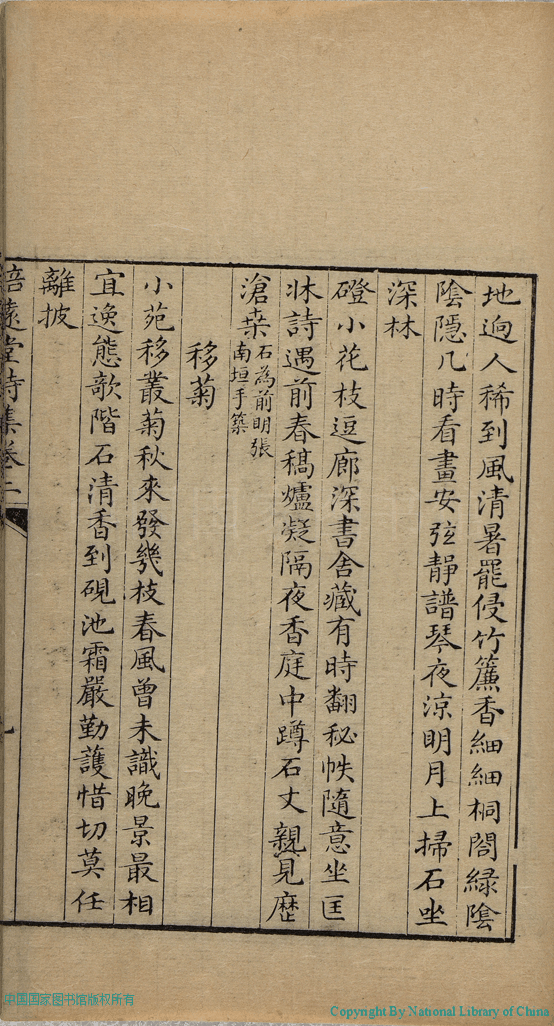 地迥人稀到風清暑罷侵竹簾香細細桐閣綠陰
陰隱几時看畫安弦靜譜琴夜涼明月上掃石坐
深林
磴小花枝逗廊深書舍藏有時翻秘帙隨意坐匡
牀詩遇前春稿爐凝隔夜香庭中蹲石丈親見歷
滄桒石為前明張
南垣手築
移菊
小苑移叢菊秋來發幾枝春風曾未識晚景最相
宜逸態欹階石清香到硯池霜嚴勤護惜切莫任
離披
培遠堂詩集卷二
九
中国国家图书馆版权所有
Copyright By National Library of China